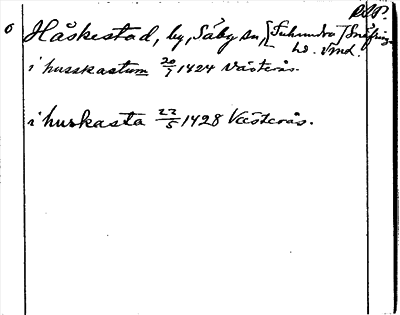 RAP.
6 Håskestad, by, Säby sn, [Tuhundra] Snäfringe
hd. Vmd.
i husskastum 20/7 1424 Västerås.
i huskasta 22/5 1428 Västerås.